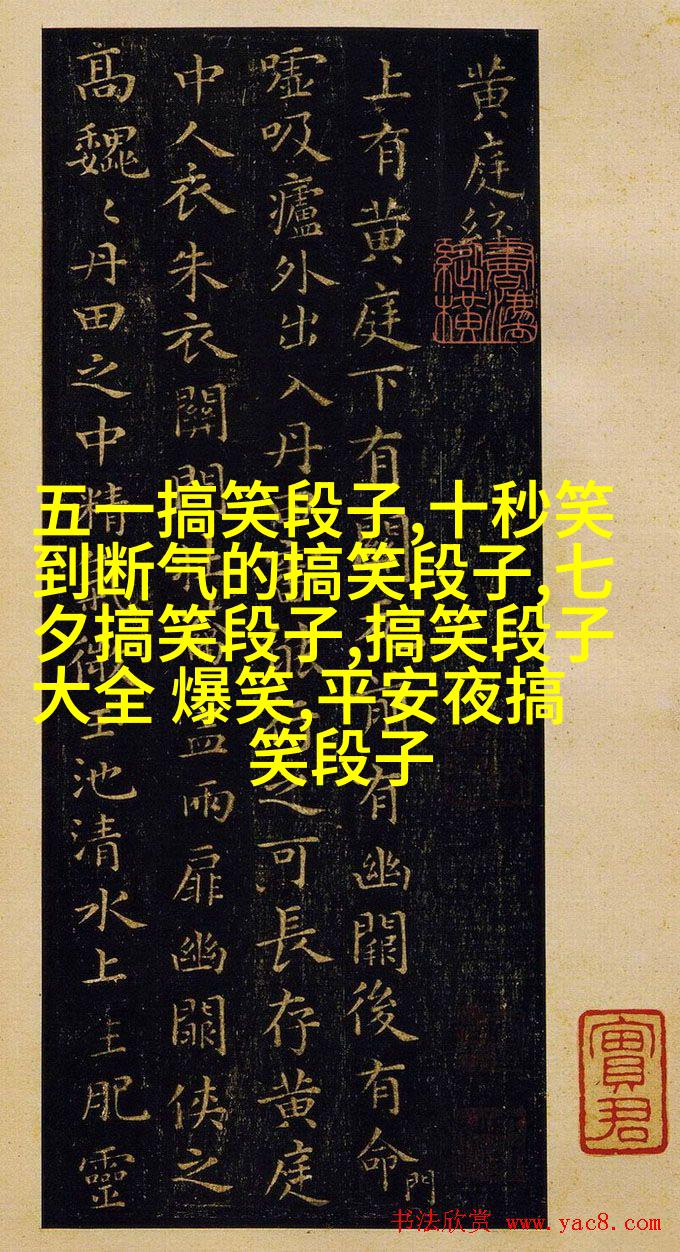 黄庭經
上有黄庭下有關前有幽闕後有命門
嘘吸廬外出入丹之可長存黄庭
中人衣朱衣關門蓋兩扉幽闕俠之
高巍〻丹田之中精氣微玉池清水上生肥靈
五一搞笑段子,十秒笑
到断气的搞笑段子,七
夕搞笑段子,搞笑段子
大全 爆笑,平安夜搞
笑段子
實君
书法欣赏 www.yac8.com